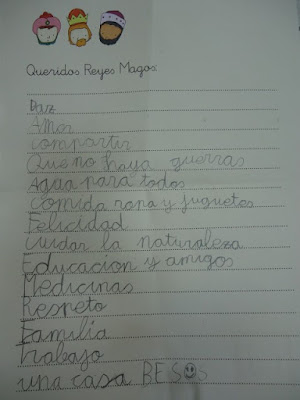 Queridos Reyes Magos:
Paz
Amor
compartir
Que no haya guerras
Agua para todos
comida ropa y juguetes
Felicidad
Cuidar la naturaleza
Educacion y amigos
Medicinas
Respeto
Familia
trabajo
una casa BESOS